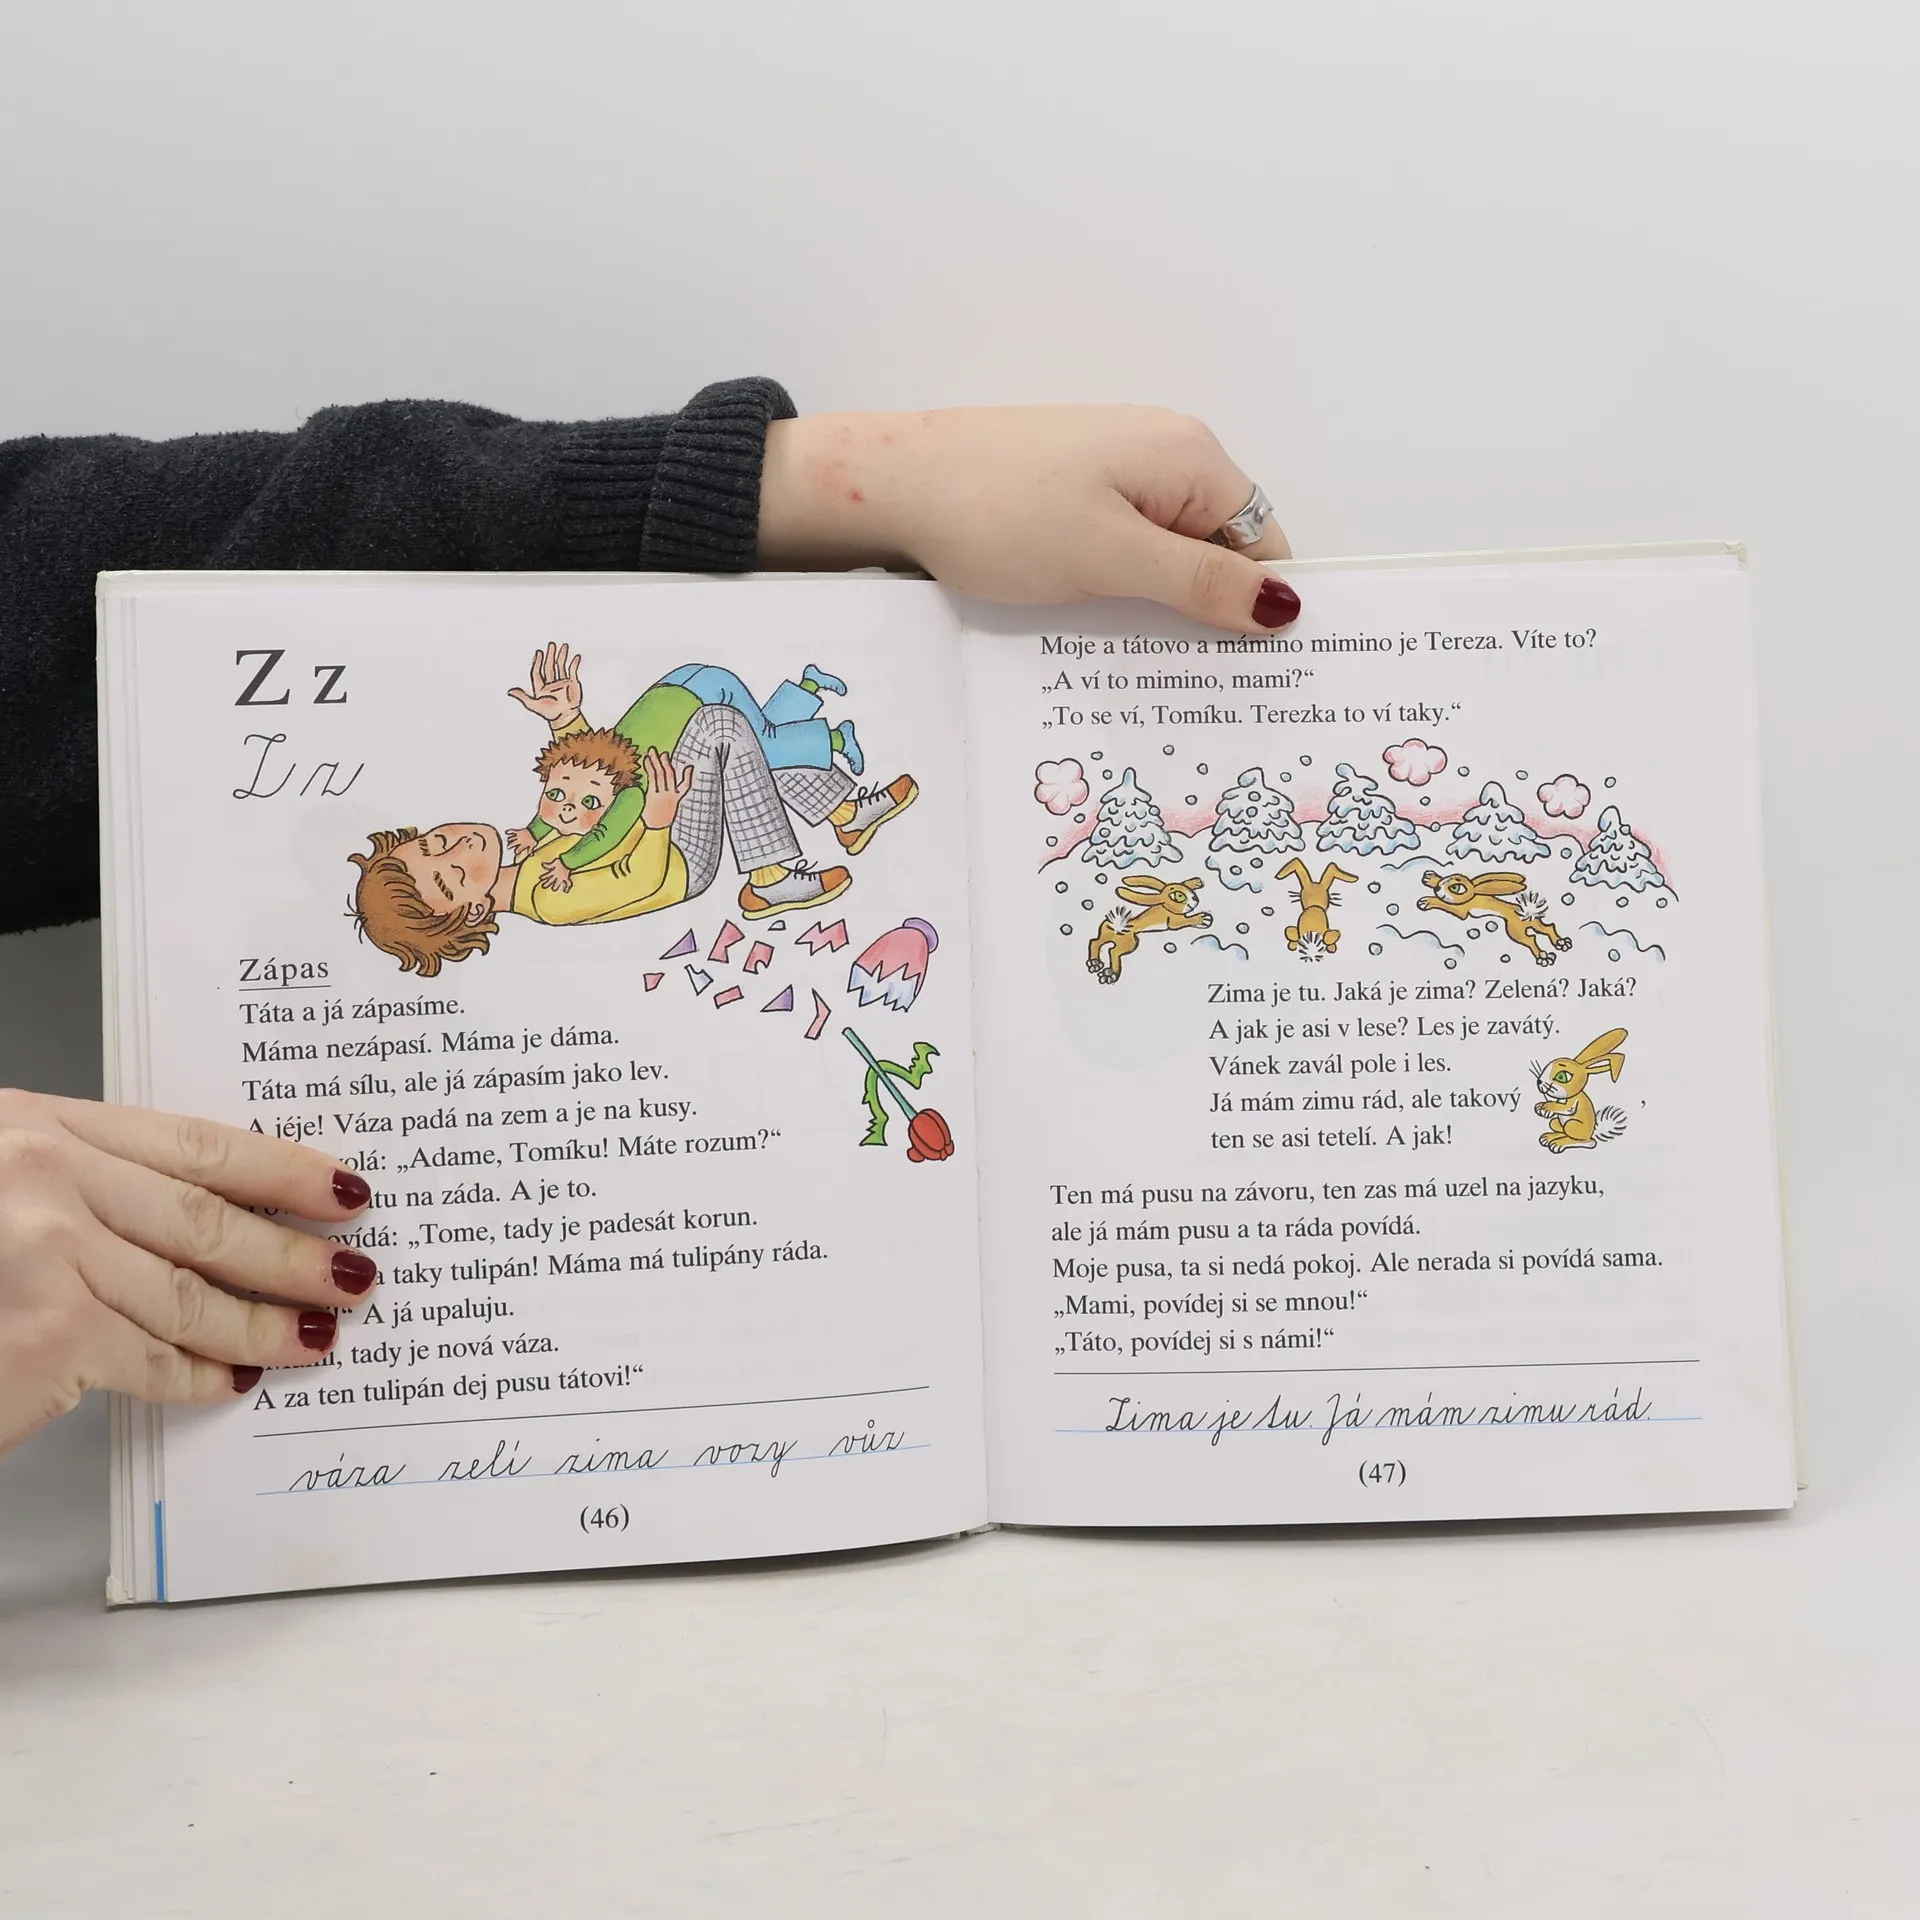 Z z
Z z
Zápas
Táta a já zápasíme.
Máma nezápasí. Máma je dáma.
Táta má sílu, ale já zápasím jako lev.
A jéje! Váza padá na zem a je na kusy.
„Adame, Tomíku! Máte rozum?“
na záda. A je to.
„Tome, tady je padesát korun.
taky tulipán! Máma má tulipány ráda.
A já upaluju.
tady je nová váza.
A za ten tulipán dej pusu tátovi!“
váza zelí zima vozy vůz
(46)
Moje a tátovo a mámino mimino je Tereza. Víte to?
„A ví to mimino, mami?“
„To se ví, Tomíku. Terezka to ví taky.“
Zima je tu. Jaká je zima? Zelená? Jaká?
A jak je asi v lese? Les je zavátý.
Vánek zavál pole i les.
Já mám zimu rád, ale takový ,
ten se asi tetelí. A jak!
Ten má pusu na závoru, ten zas má uzel na jazyku,
ale já mám pusu a ta ráda povídá.
Moje pusa, ta si nedá pokoj. Ale nerada si povídá sama.
„Mami, povídej si se mnou!“
„Táto, povídej si s námi!“
Zima je tu. Já mám zimu rád.
(47)